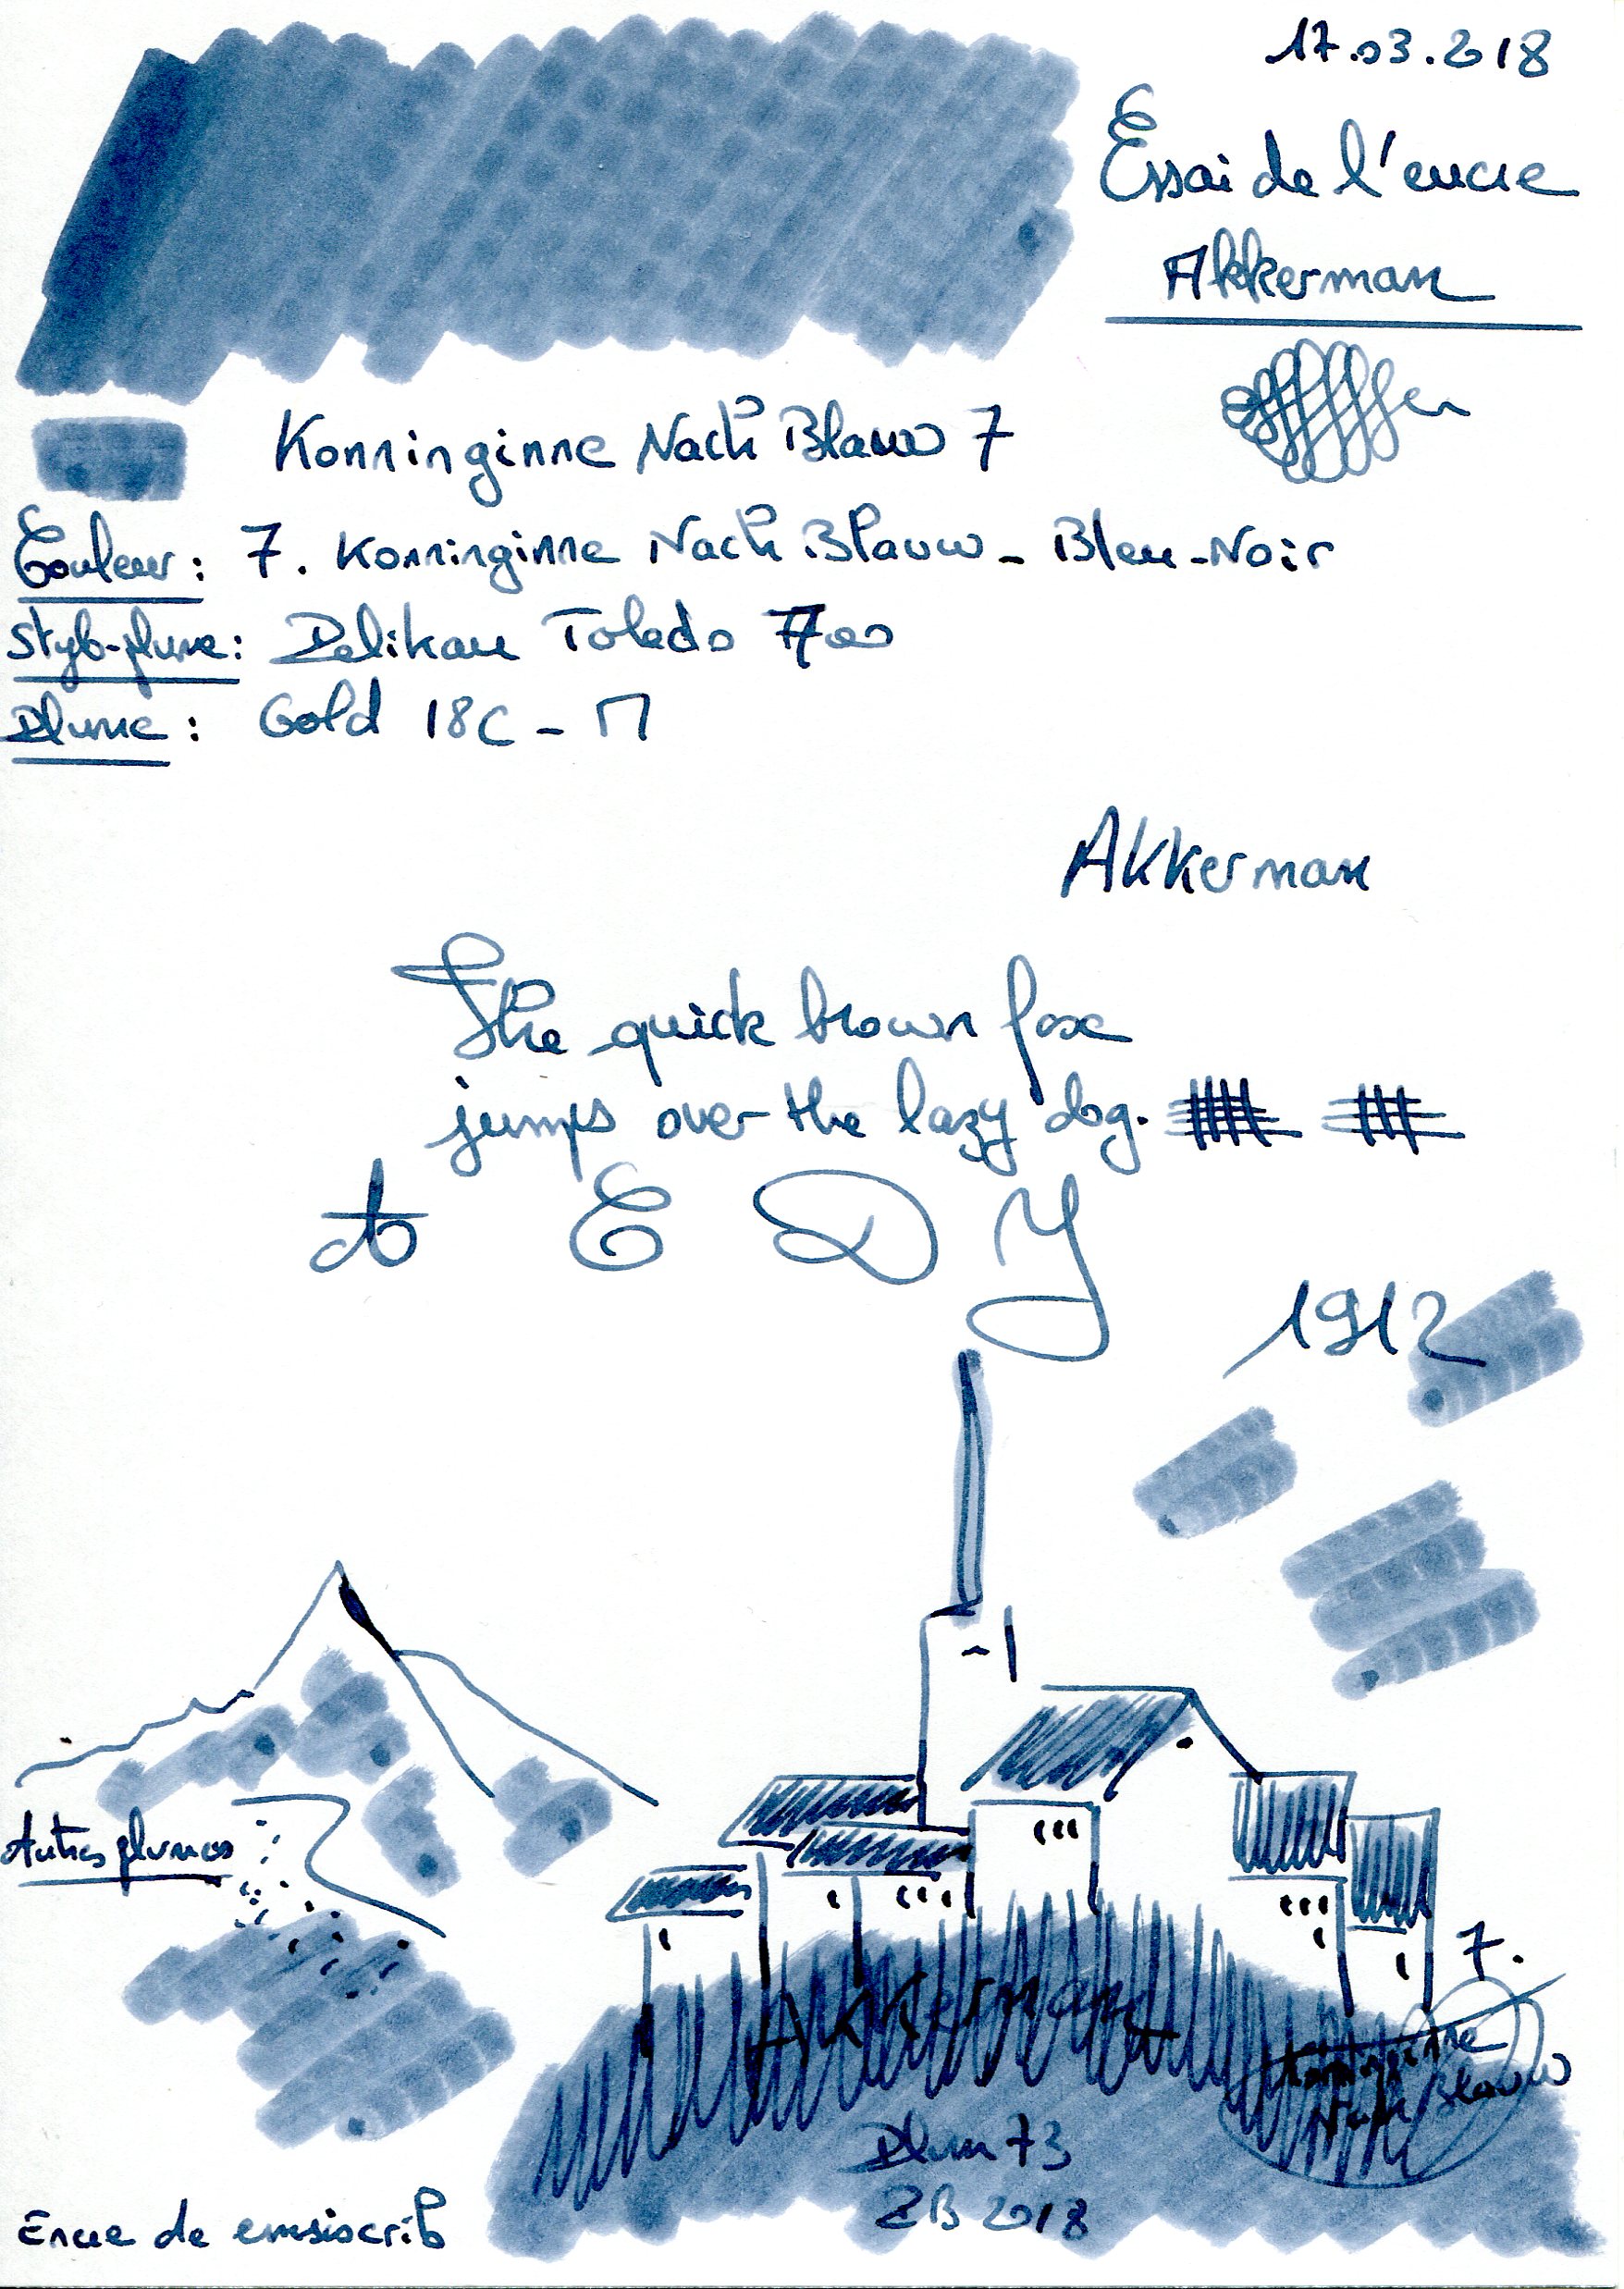 17.03.2018
Essai de l'encre
Akkerman
Konninginne Nach Blauw 7
Couleur : 7. Konninginne Nach Blauw - Bleu-Noir
Stylo-plume : Pelikan Toledo 700
Plume : Gold 18C - M
Akkerman
The quick brown fox
jumps over the lazy dog.
A E D Y
1912
Autres plumes
7.
Akkerman
Konninginne
Nach Blauw
Plum 73
2018
Encre de ensiscrib